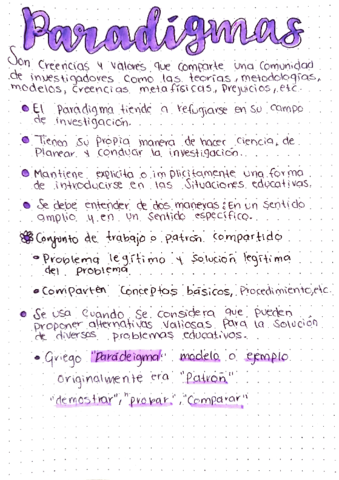 Paradigmas
Son creencias y valores que comparte una comunidad
de investigadores como las teorías, metodologías,
modelos, creencias metafísicas, prejuicios, etc.
El Paradigma tiende a refugiarse en su campo
de investigación.
Tienen su propia manera de hacer ciencia, de
Planear y conducir la investigación.
Mantiene explícita o implícitamente una forma
de introducirse en las situaciones educativas.
Se debe entender de dos maneras: En un sentido
amplio y en un sentido específico.
Conjunto de trabajo o patrón compartido
Problema legítimo y solución legítima
del problema
Comparten conceptos básicos, Procedimiento, etc.
Se usa cuando se considera que pueden
proponer alternativas valiosas para la solución
de diversos problemas educativos.
Griego "Paradeigma" modelo o ejemplo
originalmente era "Patrón"
"demostrar", "probar", "Comparar"